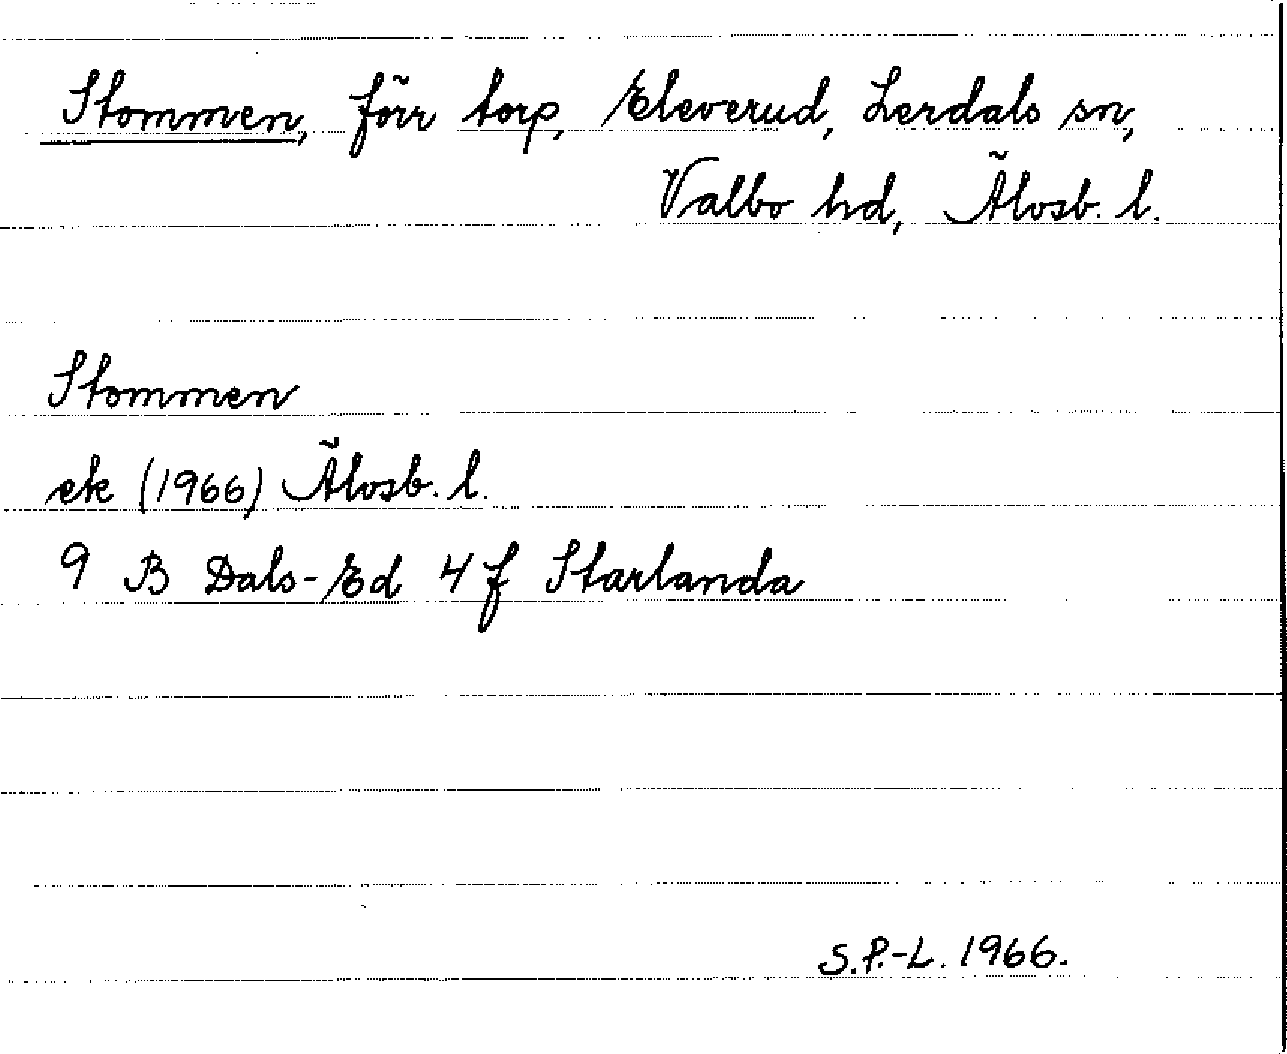 Stommen, förr torp, Eleverud, Lerdals sn,
Valbo hd, Älvsb. l.
Stommen
ek (1966) Älvsb. l.
9 B Dals-Ed 4 f Starlanda
S.P.-L. 1966.